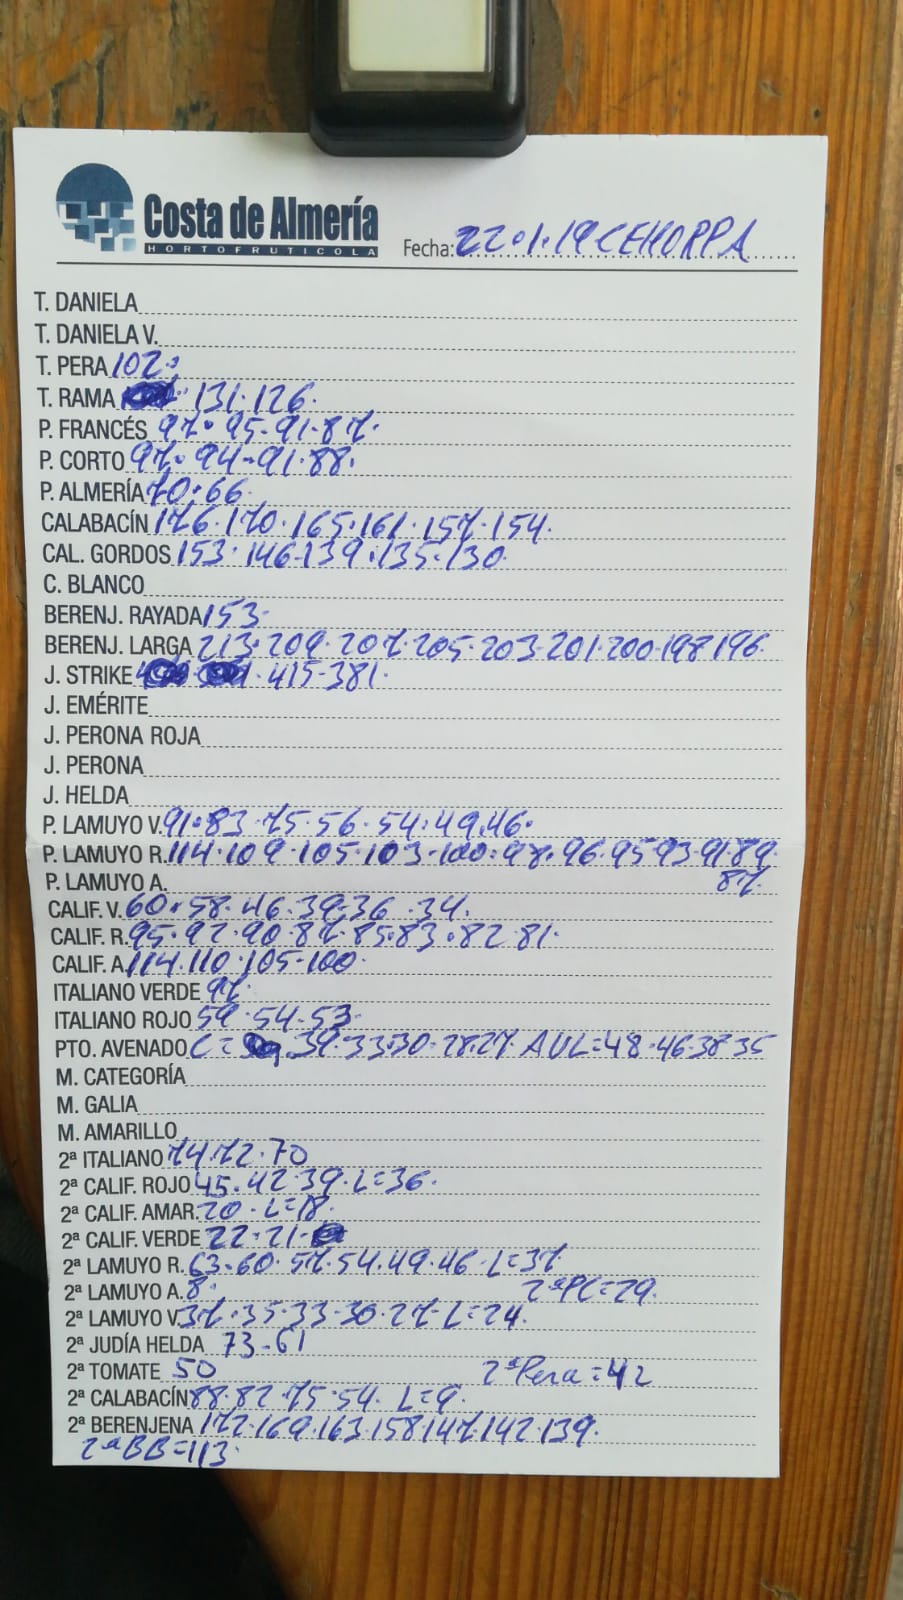 Costa de Almería
HORTOFRUTICOLA
Fecha: 22.1.19 CEHORPA
T. DANIELA
T. DANIELA V.
T. PERA 102.
T. RAMA 131.126.
P. FRANCÉS 97.95-91.87.
P. CORTO 97.94-91.88.
P. ALMERÍA 70.66
CALABACÍN 176.170.165.161.157.154.
CAL. GORDOS 153.146.139.135.130
C. BLANCO
BERENJ. RAYADA 153.
BERENJ. LARGA 213.209.207.205.203.201.200.198 196.
J. STRIKE 415-381.
J. EMÉRITE
J. PERONA ROJA
J. PERONA
J. HELDA
P. LAMUYO V. 91.83.75.56.54.49.46.
P. LAMUYO R. 114.109.105.103.100.98.96.95.93.91.89
P. LAMUYO A. 87.
CALIF. V. 60.58.46.39.36.34.
CALIF. R. 95.92.90.87.85.83.82.81.
CALIF. A. 114.110.105-100
ITALIANO VERDE 97.
ITALIANO ROJO 59.54-53
PTO. AVENADO C= 39.33.30.28.27 AUL=48.46.38 35
M. CATEGORÍA
M. GALIA
M. AMARILLO
2ª ITALIANO 74.72.70
2ª CALIF. ROJO 45.42.39.L=36.
2ª CALIF. AMAR. 20.L=18.
2ª CALIF. VERDE 22.21.
2ª LAMUYO R. 63.60.57.54.49.46.L=37
2ª LAMUYO A. 8. 2ªPC=29.
2ª LAMUYO V. 37.35.33.30.27.L=24.
2ª JUDÍA HELDA 73-61
2ª TOMATE 50 2ªPera=42
2ª CALABACÍN 88.82.75.54. L=9.
2ª BERENJENA 172.169.163.158.147.142.139.
2ªBB=113.